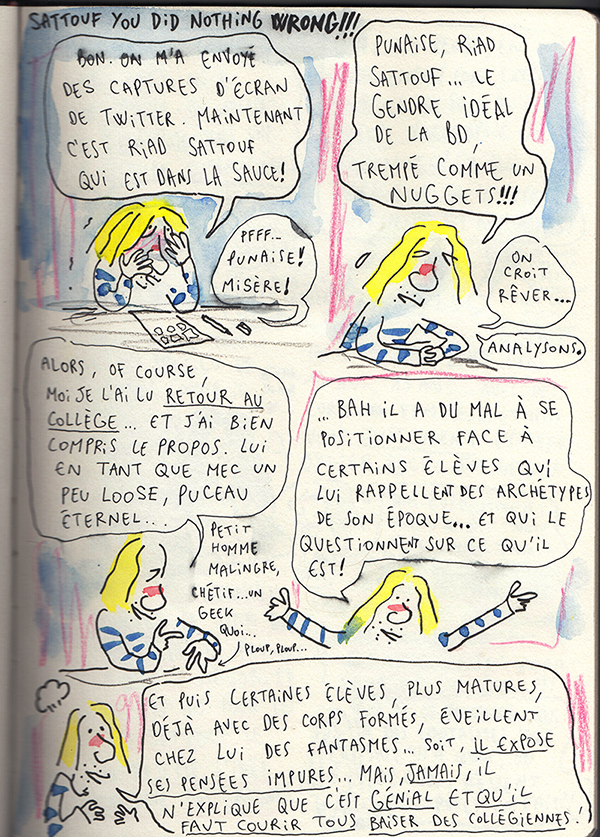 SATTOUF YOU DID NOTHING WRONG!!!
BON. ON M'A ENVOYÉ
DES CAPTURES D'ÉCRAN
DE TWITTER. MAINTENANT
C'EST RIAD SATTOUF
QUI EST DANS LA SAUCE!
PFFF...
PUNAISE!
MISÈRE!
PUNAISE, RIAD
SATTOUF... LE
GENDRE IDÉAL
DE LA BD,
TREMPÉ COMME UN
NUGGETS!!!
ON
CROIT
RÊVER...
ANALYSONS.
ALORS, OF COURSE,
MOI JE L'AI LU RETOUR AU
COLLÈGE... ET J'AI BIEN
COMPRIS LE PROPOS. LUI
EN TANT QUE MEC UN
PEU LOOSE, PUCEAU
ÉTERNEL...
PETIT
HOMME
MALINGRE,
CHÉTIF... UN
GEEK
QUOI...
PLOUP, PLOUP...
... BAH IL A DU MAL À SE
POSITIONNER FACE À
CERTAINS ÉLÈVES QUI
LUI RAPPELLENT DES ARCHÉTYPES
DE SON ÉPOQUE... ET QUI LE
QUESTIONNENT SUR CE QU'IL
EST!
ET PUIS CERTAINES ÉLÈVES, PLUS MATURES,
DÉJÀ AVEC DES CORPS FORMÉS, ÉVEILLENT
CHEZ LUI DES FANTASMES... SOIT, IL EXPOSE
SES PENSÉES IMPURES... MAIS, JAMAIS, IL
N'EXPLIQUE QUE C'EST GÉNIAL ET QU'IL
FAUT COURIR TOUS BAISER DES COLLÉGIENNES!